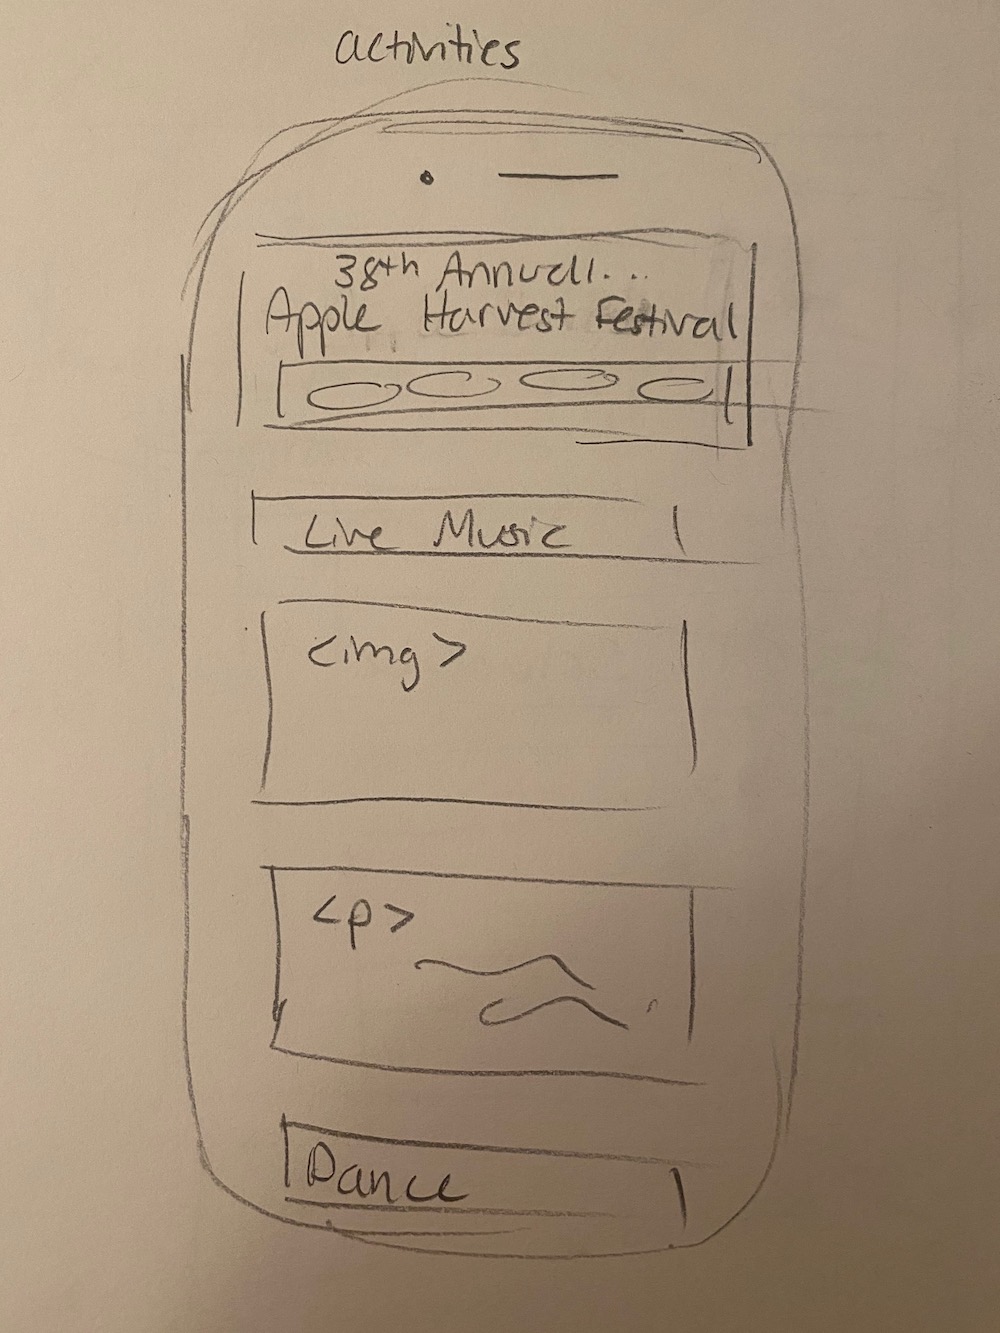 activities
38th Annual...
Apple Harvest Festival
Live Music
<img>
<p>
Dance